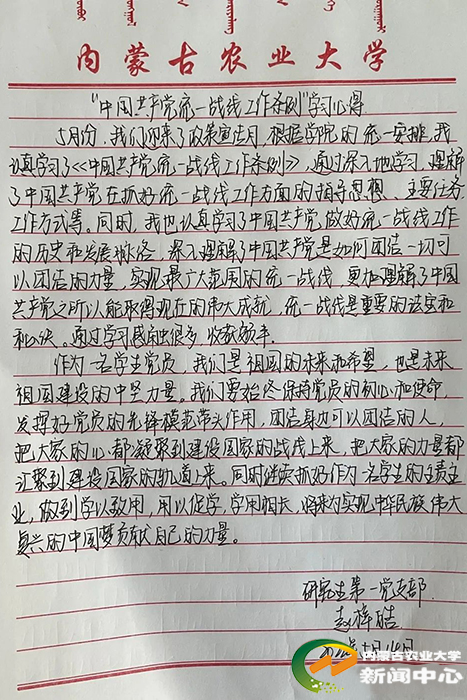 内蒙古农业大学
“中国共产党统一战线工作条例”学习心得
5月份，我们迎来了政策宣传月，根据学院的统一安排，我
认真学习了《中国共产党统一战线工作条例》，通过深入地学习，理解
了中国共产党在抓好统一战线工作方面的指导思想、主要任务、
工作方式等。同时，我也认真学习了中国共产党做好统一战线工作
的历史和发展脉络，深入理解了中国共产党是如何团结一切可
以团结的力量，实现最广大范围的统一战线，更加理解了中国
共产党之所以能取得现在的伟大成就，统一战线是重要的法宝和
秘诀。通过学习感触很多，收获颇丰。
作为一名学生党员，我们是祖国的未来和希望，也是未来
祖国建设的中坚力量，我们要始终保持党员的初心和使命，
发挥好党员的先锋模范带头作用，团结身边可以团结的人，
把大家的心都凝聚到建设国家的战线上来，把大家的力量都
汇聚到建设国家的轨道上来。同时继续抓好作为一名学生的主责主
业，做到学以致用，用以促学，学用相长，将来为实现中华民族伟大
复兴的中国梦贡献自己的力量。
研究生第一党支部
赵梓皓
内蒙古农业大学
新闻中心